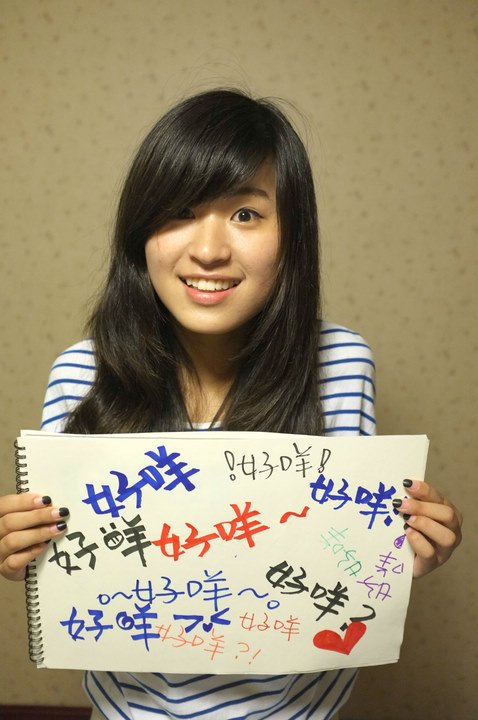 好咩
!好咩!
好咩!
好咩
好咩~
好咩?
~好咩~。
好咩
好咩?!
好咩